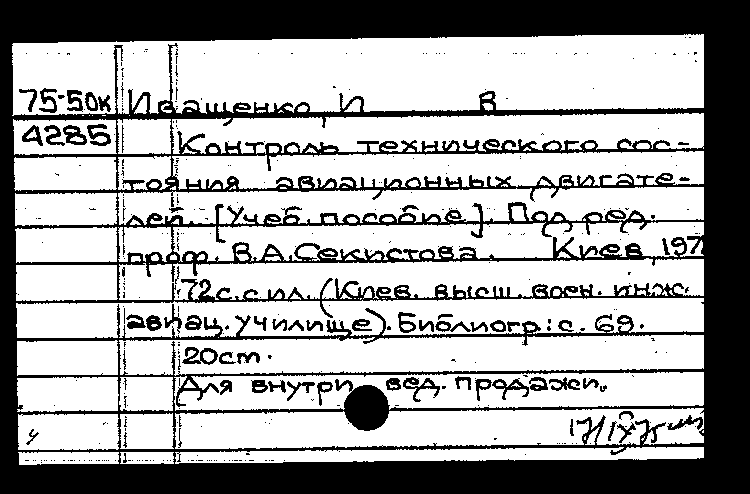 75-50к Иващенко, И В
4285 Контроль технического сос-
тояния авиационных двигате-
лей. [Учеб. пособие]. Под ред.
проф. В.А. Секистова. Киев, 197
72с. с ил. (Киев. высш. воен. инж.
авиац. училище). Библиогр.: с. 69.
20cm.
Для внутри вед. продажи.
ч